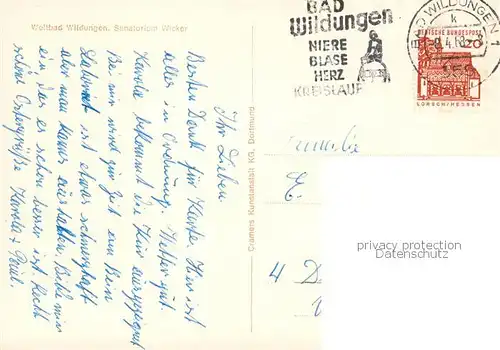 Weltbad Wildungen. Sanatorium Wicker
BAD
Wildungen
NIERE
BLASE
HERZ
KREISLAUF
BAD WILDUNGEN 1
k
DEUTSCHE BUNDESPOST
20
LORSCH/HESSEN
Ihr Lieben
Besten Dank für Karte. Hier ist
alles in Ordnung. Wetter gut.
Karola bekommt die Kur ausgezeichnet
Bei mir wird zur Zeit ein Bein
behandelt ist etwas schmerzhaft
aber man kanns aushalten. Bilde mir
ein das es schon besser ist. Recht
schöne Ostergrüße Karola + Paul.
Cramers Kunstanstalt KG, Dortmund
Familie
E.
4 D
privacy protection
watermark